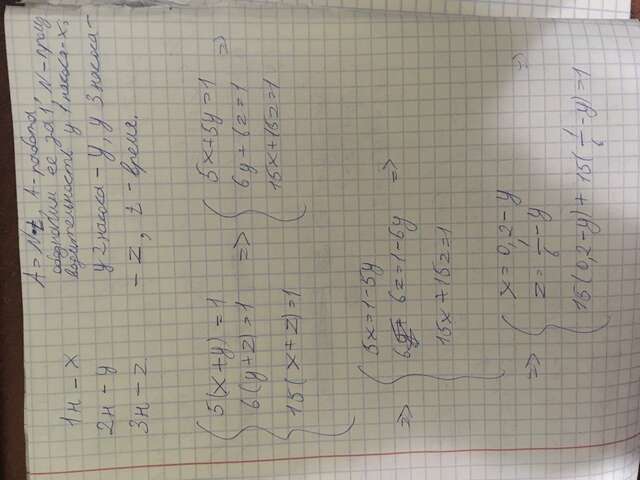 A = N·t, A - работа,
обозначим её за 1, N - произ
1н - x
водительность у 1 насоса - x,
2н - y
у 2 насоса - y, у 3 насоса -
3н - z
- z, t - время.
5(x+y) = 1
6(y+z) = 1
15(x+z) = 1
=>
5x+5y=1
6y+6z=1
15x+15z=1
=>
=>
5x=1-5y
6z=1-6y
15x+15z=1
=>
=>
x=0,2-y
z=1/6-y
15(0,2-y)+15(1/6-y)=1
=>